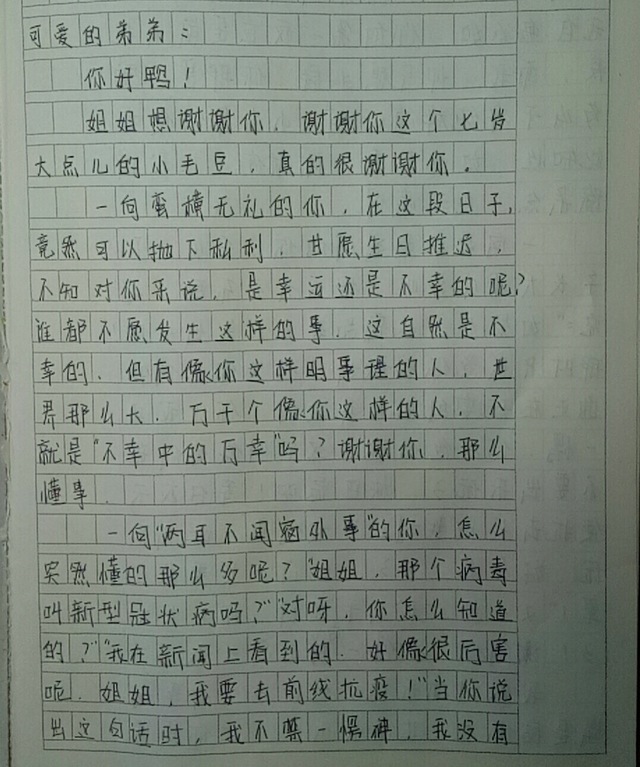 可爱的弟弟：
你好鸭！
姐姐想谢谢你，谢谢你这个七岁
大点儿的小毛豆，真的很谢谢你。
一向蛮横无礼的你，在这段日子，
竟然可以抛下私利，甘愿生日推迟，
不知对你来说，是幸运还是不幸的呢？
谁都不愿发生这样的事，这自然是不
幸的，但有像你这样明事理的人，世
界那么大，万千个像你这样的人，不
就是“不幸中的万幸”吗？谢谢你，那么
懂事。
一向“两耳不闻窗外事”的你，怎么
突然懂的那么多呢？“姐姐，那个病毒
叫新型冠状病吗？”“对呀，你怎么知道
的？”“我在新闻上看到的，好像很厉害
呢，姐姐，我要去前线抗疫！”当你说
出这句话时，我不禁一愣神，我没有